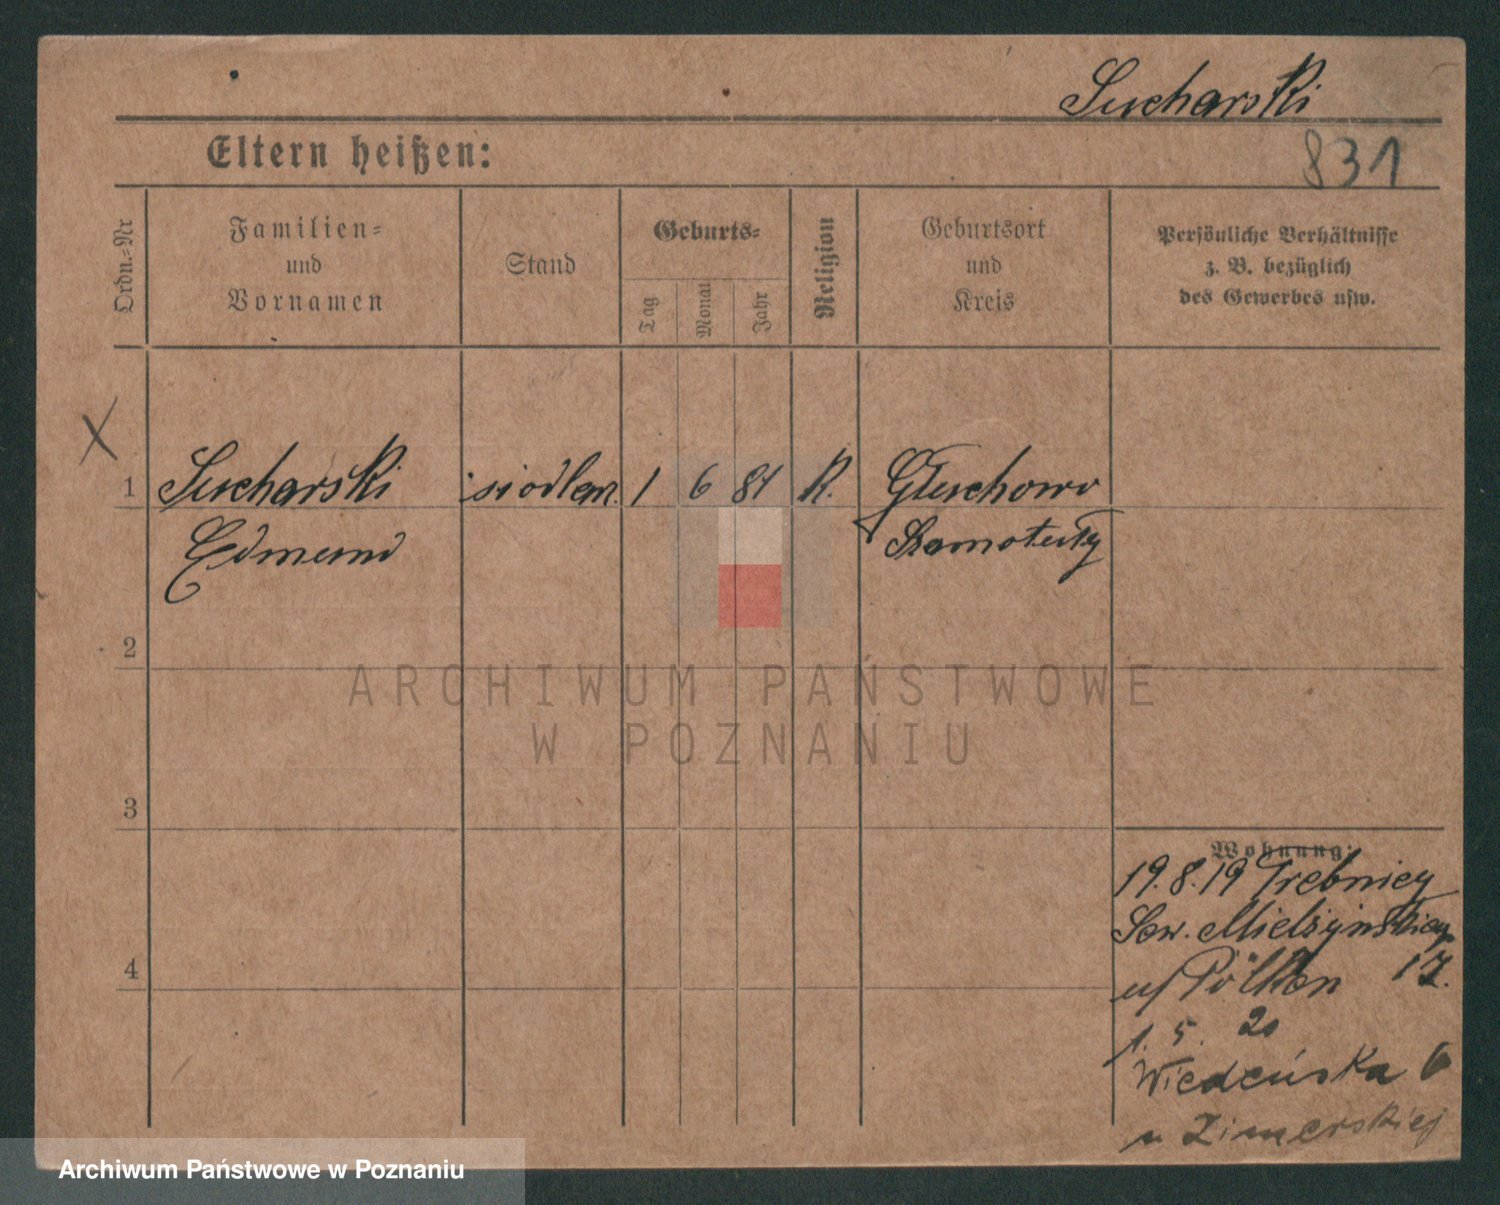 Sucharski
Eltern heißen:
831
Ordn.=Nr
Familien=
und
Vornamen
Stand
Geburts=
Tag
Monat
Jahr
Religion
Geburtsort
und
Kreis
Persönliche Verhältnisse
z. B. bezüglich
des Gewerbes usw.
X
1 Sucharski siodlarz. 1 6 81 R. Głuchowo
Edmund Szamotuły
2
3
4
Wohnung:
19.8.19 Trebnicy
Sew. Mielżyńskiego
u/ Pölken 17.
1. 5. 20
Wiedeńska 6
u Zimerskiej
ARCHIWUM PAŃSTWOWE
W POZNANIU
Archiwum Państwowe w Poznaniu